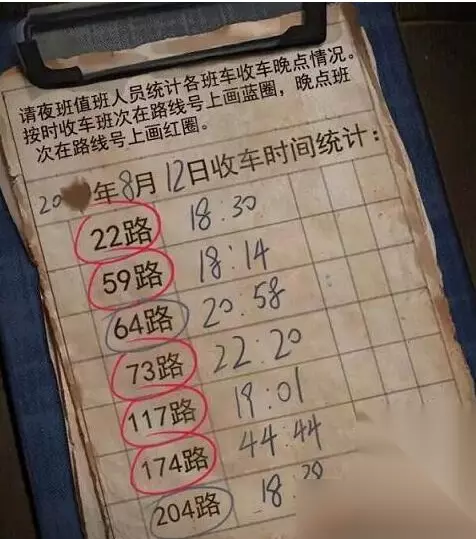 请夜班值班人员统计各班车收车晚点情况。
按时收车班次在路线号上画蓝圈，晚点班
次在路线号上画红圈。
20 年8月12日收车时间统计：
22路 18:30
59路 18:14
64路 20:58
73路 22:20
117路 19:01
174路 44:44
204路 18: